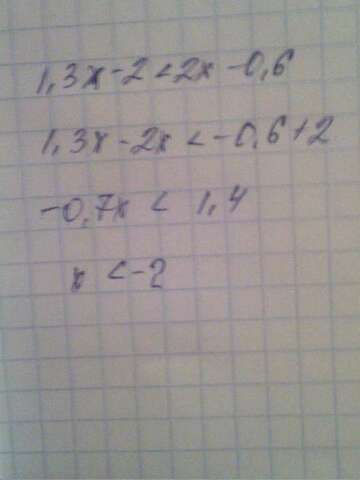 1,3x-2<2x-0,6
1,3x-2x<-0,6+2
-0,7x < 1,4
x <-2